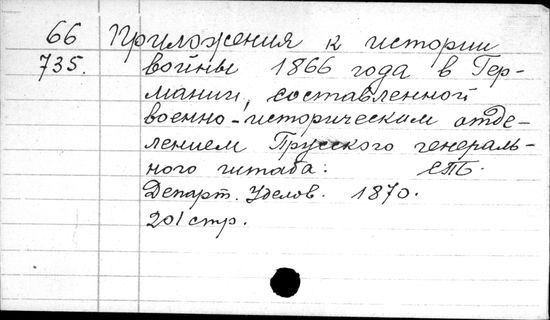 66 Приложения к истории
735. войны 1866 года в Гер-
мании, составленной
военно-историческим отде-
лением Прусского генераль-
ного штаба. СПб.
Департ. Уделов. 1870.
201 стр.